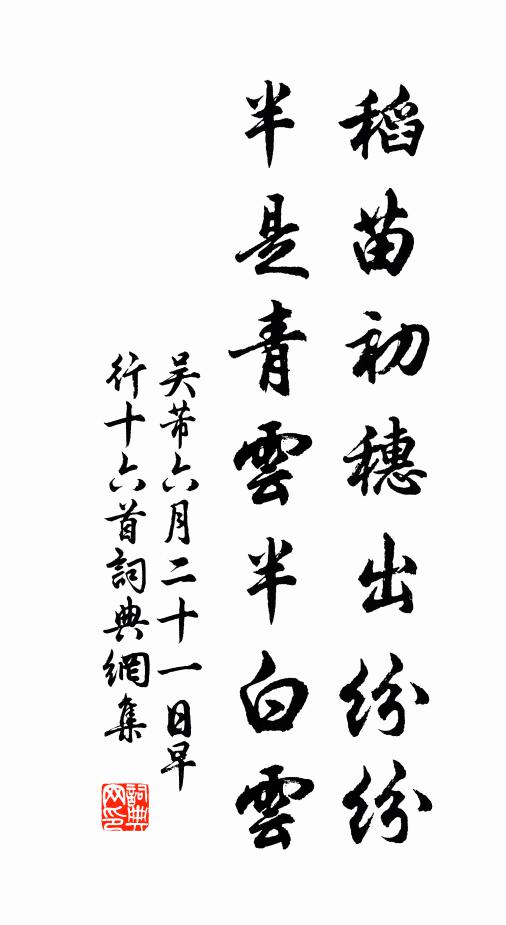 稻苗初穗出紛紛
半是青雲半白雲
吴芾六月二十一日早
行十六首詞典網集
詞典网印